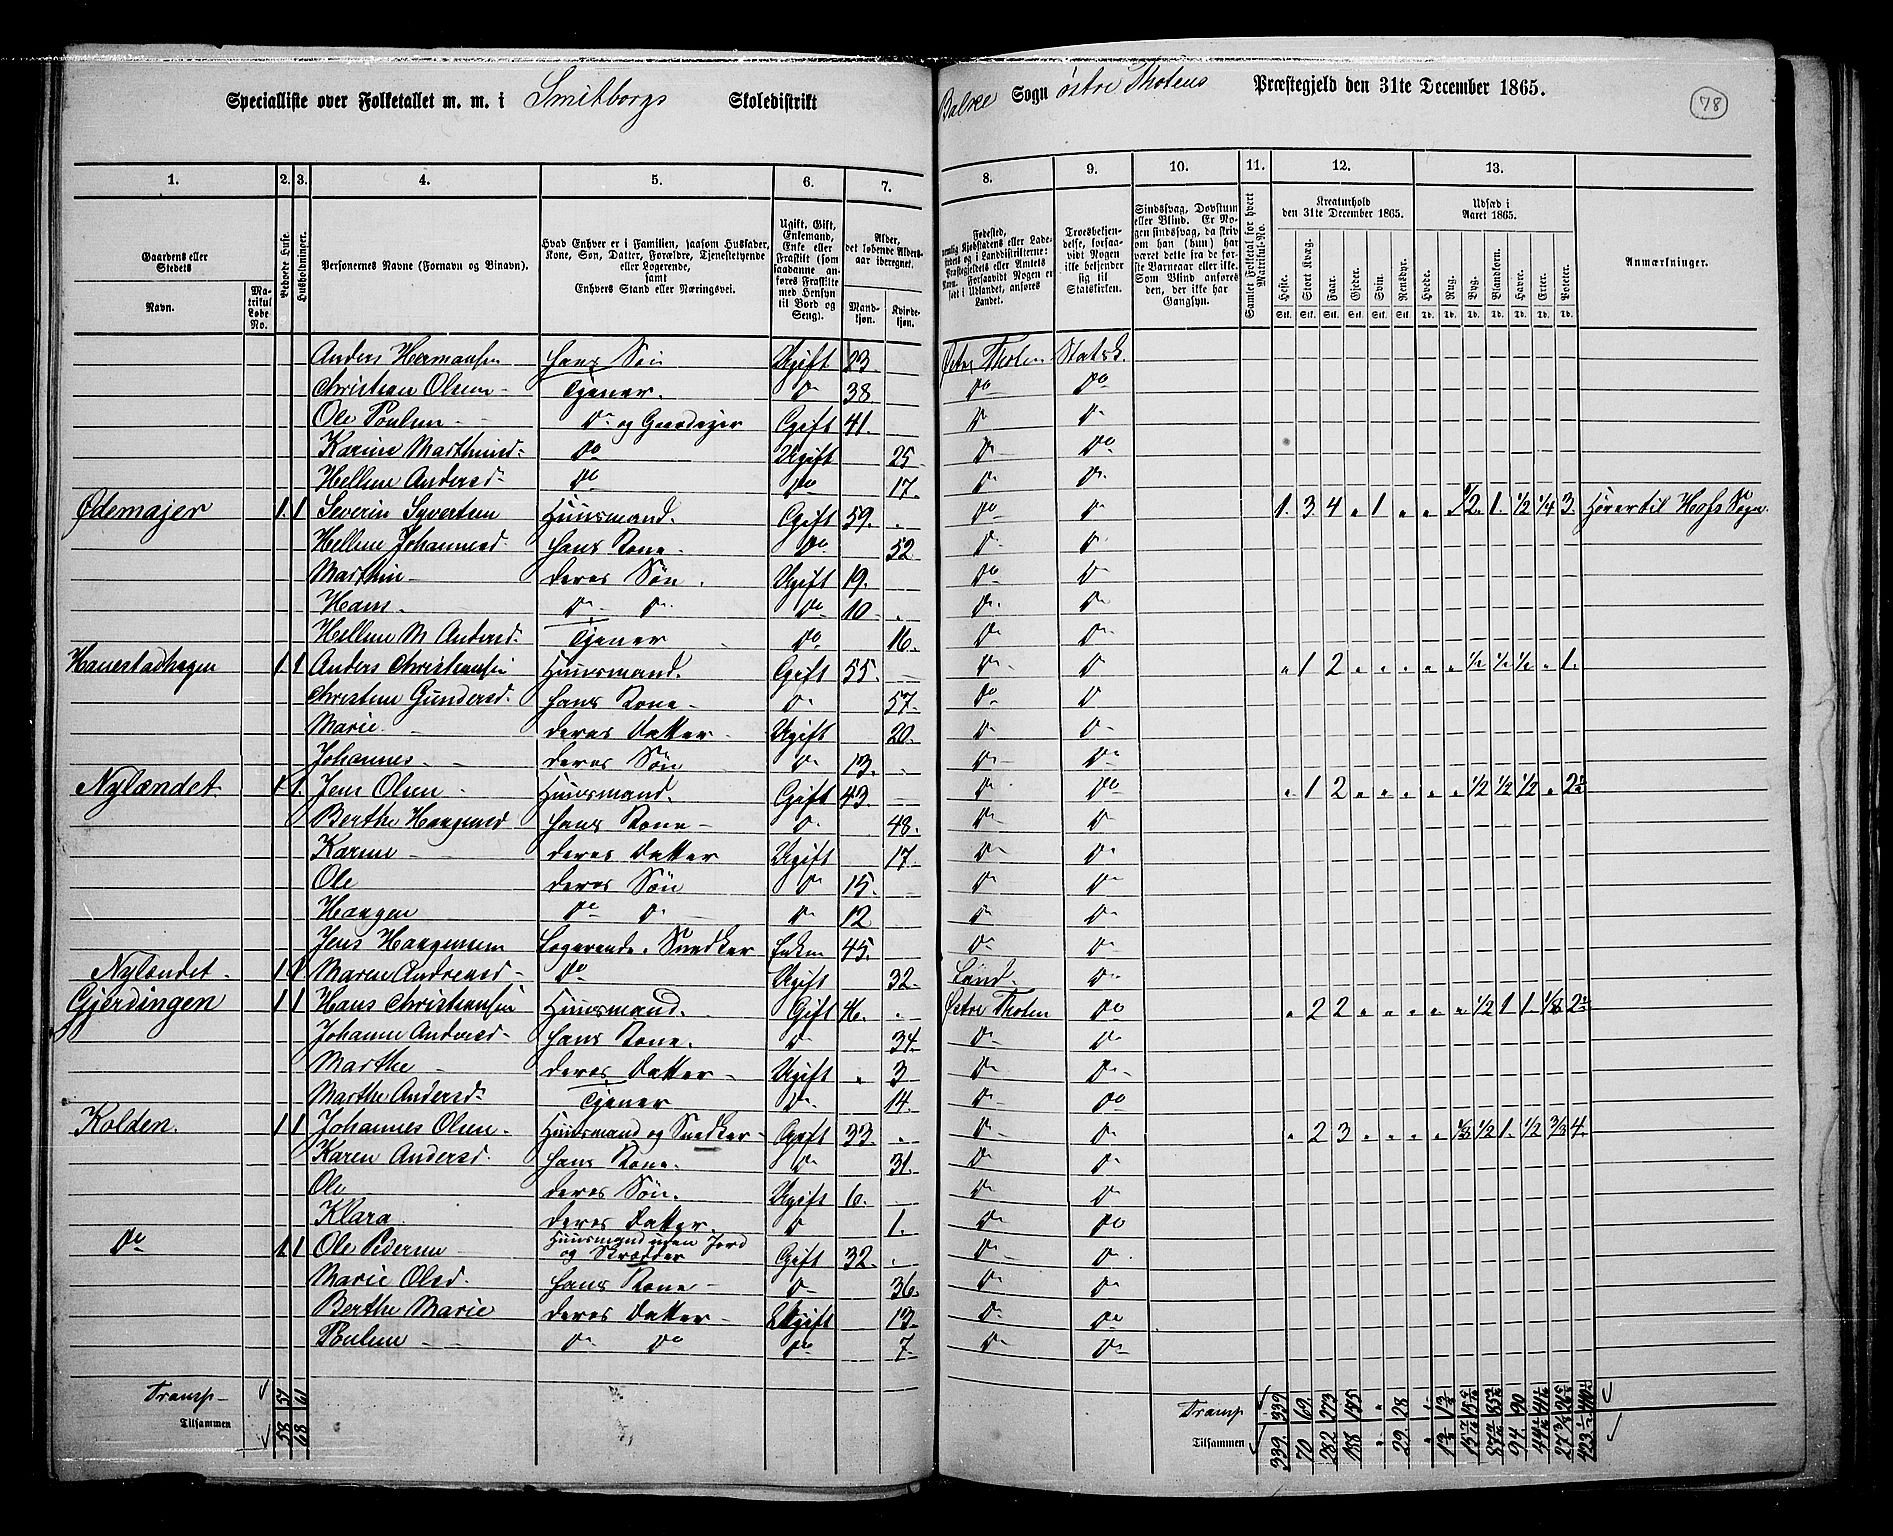 Specialliste over Folketallet m. m. i Smitborgs Skoledistrikt Balke Sogn østre Thotens Præstegjeld den 31te December 1865. 78
1. 2. 3. 4. 5. 6. 7. 8. 9. 10. 11. 12. 13.
Gaardens eller Stedets
Navn.
Matrikul Løbe No.
Beboede Huse.
Husholdninger.
Personernes Navne (Fornavn og Binavn).
Hvad Enhver er i Familien, saasom Husfader, Kone, Søn, Datter, Forældre, Tjenestetyende eller Logerende, samt Enhvers Stand eller Næringsvei.
Ugift, Gift, Enkemand, Enke eller Fraskilt (som saadanne anføres Fraskilte med Hensyn til Bord og Seng).
Alder, det løbende Alders-aar iberegnet.
Mand-kjøn. Kvinde-kjøn.
Troesbekjendelse, forsaavidt Nogen ikke bekjender sig til Statskirken.
Sindssvag, Døvstum eller Blind. Er Nogen sindssvag, da skrives om han (hun) har været dette fra de første Barneaar eller ikke. Som Blind anføres den, der ikke har Gangsyn.
Samlet Folketal for hvert Matrikul-No.
Kreaturhold den 31te December 1865.
Heste. Stort Kvæg. Faar. Gjeder. Svin. Rensdyr.
Udsæd i Aaret 1865.
Hvede. Rug. Byg. Blandkorn. Havre. Erter. Poteter.
Anmærkninger.
Anders Hermansen hans Søn Ugift 23 Østre Thoten Statsk.
Christian Olsen Tjener. do 38. do do
Ole Poulsen do og Gaardejer Gift 41. do do
Karine Marthinsd. do Ugift 25 do do
Hellene Andersd. do do 17. do do
Ødemajer 1. 1 Severin Syvertsen Huusmand. Gift 59. do do 1. 3 4 " 1 " " " 1/2. 1. 1/2 1/4 3. Hører til Hofs Sogn.
Hellene Johannesd. hans Kone do 52 do do
Marthin deres Søn. Ugift 19. do do
Hans do do do 10. do do
Hellene M Andersd. Tjener do 16. do do
Hanestadhagen 1. 1 Anders Christiansen Huusmand. Gift 55. do do " 1 2 " " " " " 1/2 1/2 1/2 " 1.
Christine Gundersd. hans Kone do 57. do do
Marie deres Datter Ugift 20. do do
Johannes deres Søn do 13. do do
Nylændet 1 1. Jens Olsen Huusmand. Gift 43. do do " 1 2 " " " " " 1/2 1/2 1/2 " 2
Berthe Haagensd hans Kone do 48. do do
Karine deres Datter Ugift 17. do do
Ole deres Søn do 15. do do
Haagen do do do 12 do do
Jens Haagensen Logerende. Snedker Enkm 45. do do
Nylændet 1 1 Maren Andreasd do Ugift 32. Land. do
Gjerdingen 1 1 Hans Christiansen Huusmand. Gift 46. Østre Thoten do " 2 2 " " " " " 1/2 1 1. 1/8 2
Johanne Andersd. hans Kone. do 34. do do
Marthe deres Datter Ugift " 3 do do
Marthe Andersd. Tjener do 14. do do
Kolden. 1 1 Johannes Olsen. Huusmand og Snedker Gift 33. do do " 2 3 " " " " 1/2 1. 1/2 4.
Karen Andersd. hans Kone. do 31. do do
Ole deres Søn. Ugift 6. do do
Klara deres Datter. do 1. do do
do 1 Ole Pedersen Huusmand uden Jord og Skrædder Gift 32. do do
Marie Olsd. hans Kone do 36. do do
Berthe Marie deres Datter Ugift 13. do do
Pouline do do do 7 do do
Transp 57 61 Transp 339 69. 273 145 " 28
Tilsammen 58 68 Tilsammen 339. 70 282 29.